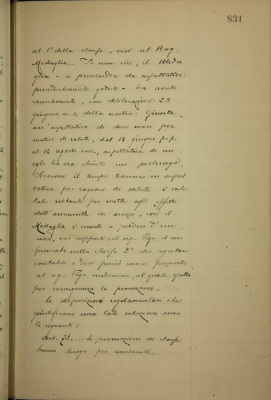 831
al 1° della classe, cioè al Rag.
Medaglia. Se non che, il Meda-
glia - a prescindere da aspettative
precedentemente godute - ha avuto
recentemente, con deliberazione 23
giugno u. s. della nostra Giunta,
un'aspettativa di due mesi per
motivi di salute, dal 14 giugno
al 14 agosto, aspettativa di cui
egli ha ora chiesto un prolungo.
il tempo trascorso in aspet-
tativa per ragioni di salute è valu-
tato soltanto per metà agli effetti
dell'anzianità di servizio, così il
Medaglia è venuto a perdere d'un
mese, nei rapporti col sig.
nella classe 2ª dei
contabili e deve perciò essere preposto
al sig. medesimo, al quale spetta
per conseguenza la promozione.
Le disposizioni regolamentari che
giustificano una tale soluzione sono
le seguenti:
Art. 23. ... Le promozioni di classe
hanno luogo per anzianità.